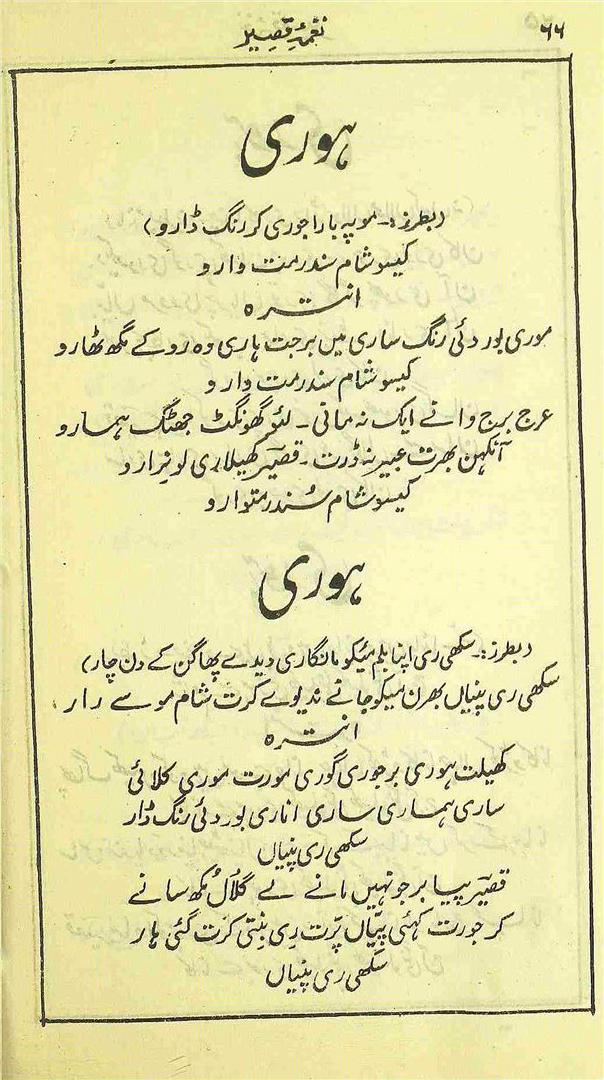 ۶۶
نغمۂ قصیر
ہوری
(بطرز:۔ موپہ بارا جوری کر رنگ ڈارو)
کیسو شام سندر مت وارو
انترہ
موری بور دئی رنگ ساری میں برجت ہاری وہ روکے مگھ ٹھارو
کیسو شام سندر مت وارو
عرج برج وانے ایک نہ مانی۔ لئو گھونگٹ جھٹک ہمارو
آنکھن بھرت عبیر نہ ڈرت۔ قصیر کھیلاری لونرارو
کیسو شام سُندر متوارو
ہوری
(بطرز:۔ سکھی ری اپنا بلم میکو مانگاری دیدے پھاگن کے دن چار)
سکھی ری پنیاں بھرن میکو جانے ندیوے کرت شام موسے رار
انترہ
کھیلت ہوری برجوری گوری مورت موری کلائی
ساری ہماری ساری اناری بور دئی رنگ ڈار
سکھی ری پنیاں
قصیر پیا برجو نہیں مانے لے گلال مُکھ سانے
کر جورت کہئی پیّاں پرت رِی بنتی کرت گئی ہار
سکھی ری پنیاں